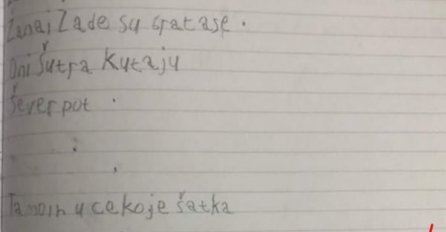 Zana i Zade su spat ase.
Oni šutra Kutaju
Šever pot.
:
,
Tamoin uce koje šatka